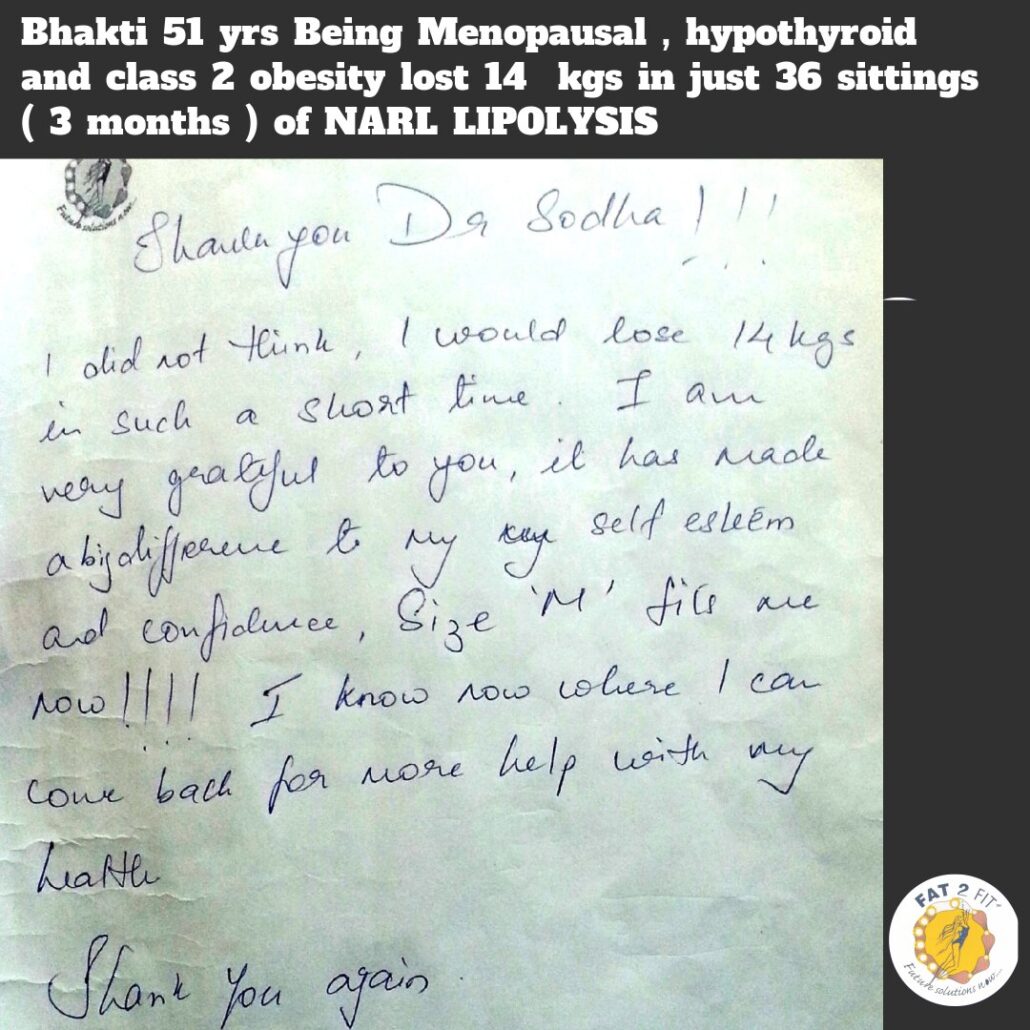 Bhakti 51 yrs Being Menopausal , hypothyroid
and class 2 obesity lost 14 kgs in just 36 sittings
( 3 months ) of NARL LIPOLYSIS
Future solutions now...
Thank you Dr Sodha !!!
I did not think, I would lose 14kgs
in such a short time. I am
very grateful to you, it has made
a big difference to my self esteem
and confidence, Size 'M' fits me
now!!!! I know now where I can
come back for more help with my
health
Thank you again.
FAT 2 FIT
Future solutions now...